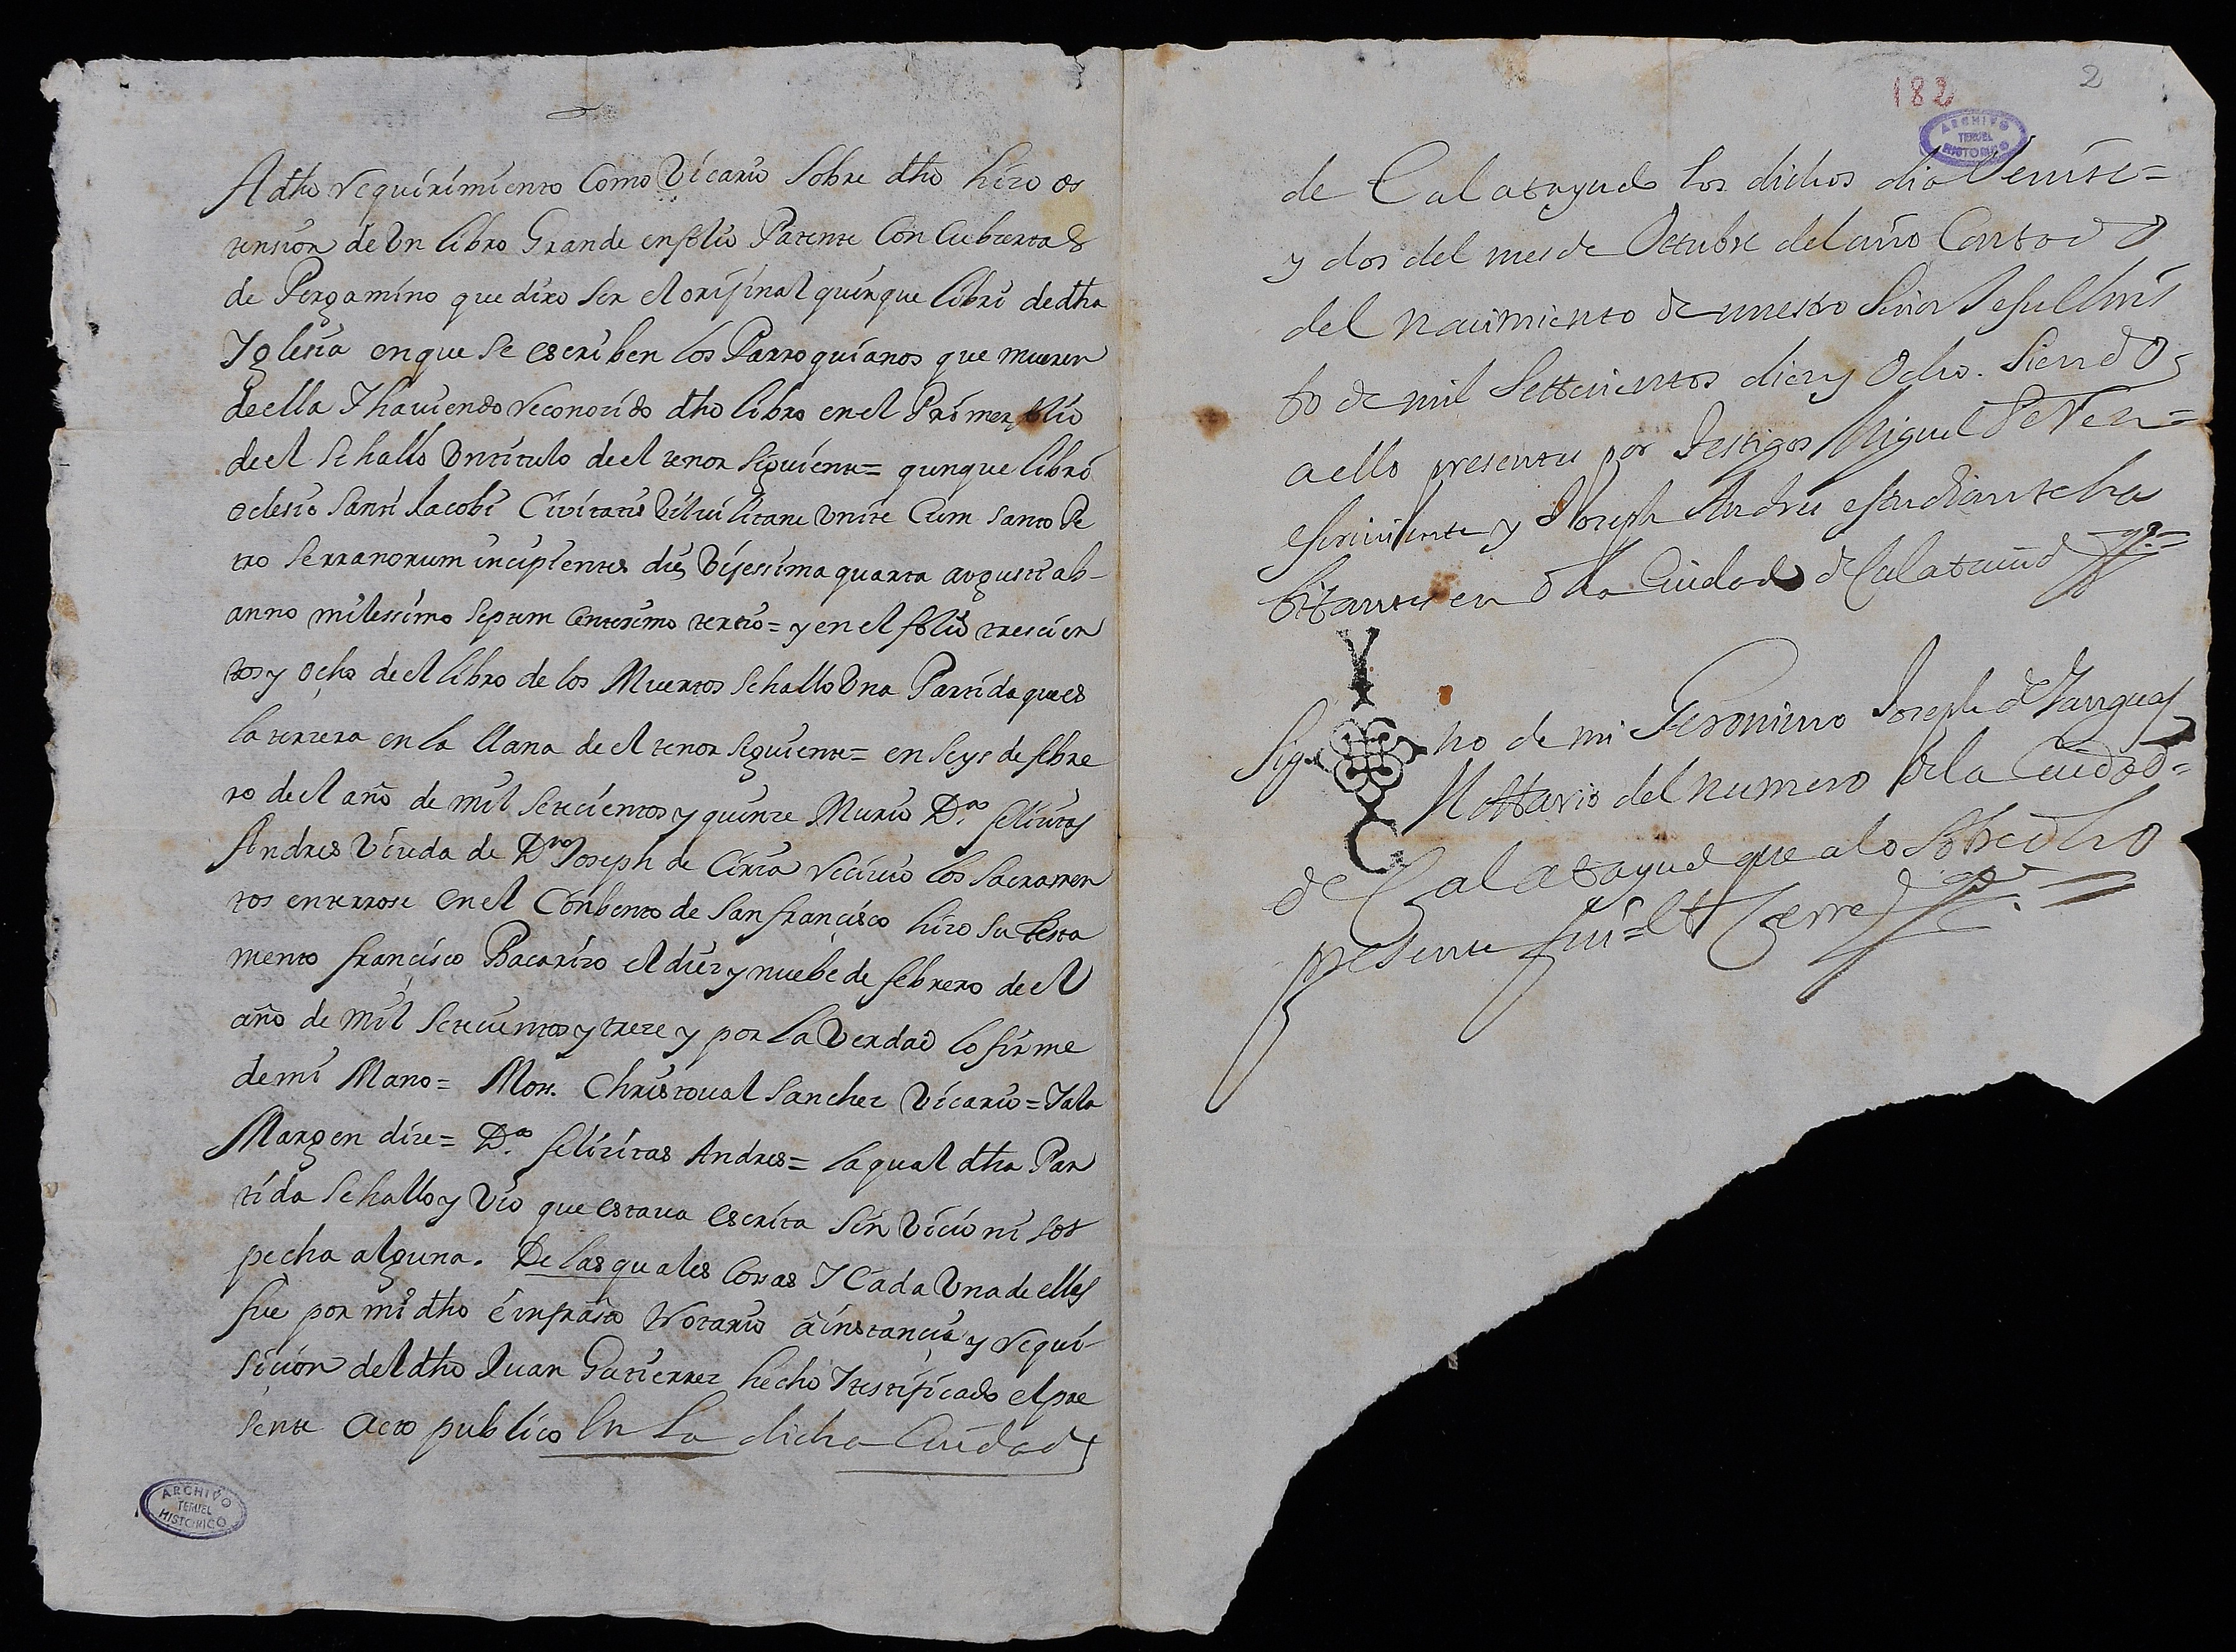 A dho requirimiento Como Vicario Sobre dho hizo os
tension de Vn libro Grande en folio Patente Con Cubiertas
de Pergamino que dixo ser el orijinal quinque libri de dha
Yglesia en que se escriben los Parroquianos que mueren
de ella Y haviendo reconozido dho libro en el Primer folio
de el se hallo Vn titulo de el tenor siguiente = qunque libri
eclesie Santi Iacobi Civitatis Vilvilitane Vnite Cum Santo Pe
tro Serranorum incipientes die Vijessima quarta augusti ab
anno milessimo Septem Centesimo tertio = y en el folio trescien
tos y ocho de el libro de los Muertos se hallo Vna Partida que es
la terzera en la llana de el tenor siguiente = en Seys de febre
ro de el año de mil setecientos y quinze Murio Da. felizitas
Andres Viuda de Dn Joseph de Ciria recivio los Sacramen
tos enterrose en el Conbento de San francisco hizo su testa
mento francisco Bacarizo el diez y nuebe de febrero de el
año de mil setecientos y treze y por la Verdad lo firme
de mi Mano = Mon. Christoval Sanchez Vicario = Y ala
Margen dize = Da. felizitas Andres = la qual dha Par
tida se hallo y Vio que estava escrita sin Vicio ni sos
pecha alguna. De las quales Cosas Y Cada Vna de ellas
fue por mi dho é infrasto Notario á instancia y requi
sicion del dho Juan Gutierrez hecho Y testificado el pre
sente acto publico En La dicha Ciudad
ARCHIVO
TERUEL
HISTORICO
182
2
ARCHIVO
TERUEL
HISTORICO
de Calatayud los dichos dia Veinte =
y dos del mes de Octubre del año Contado
del nacimiento de nuestro Señor Jesu Chris
to de mil Settecientos diez y Ocho. Siendo
a ello presentes por Testigos Miguel
escriviente y Joseph Andres estudiante ha
bitantes en dha Ciudad de Calatayud
Sig no de mi Geronimo Joseph de Yanguas
Nottario del numero de la Ciudad =
de Calatayud que a lo Sobre dho
presente fui = Et Cerre